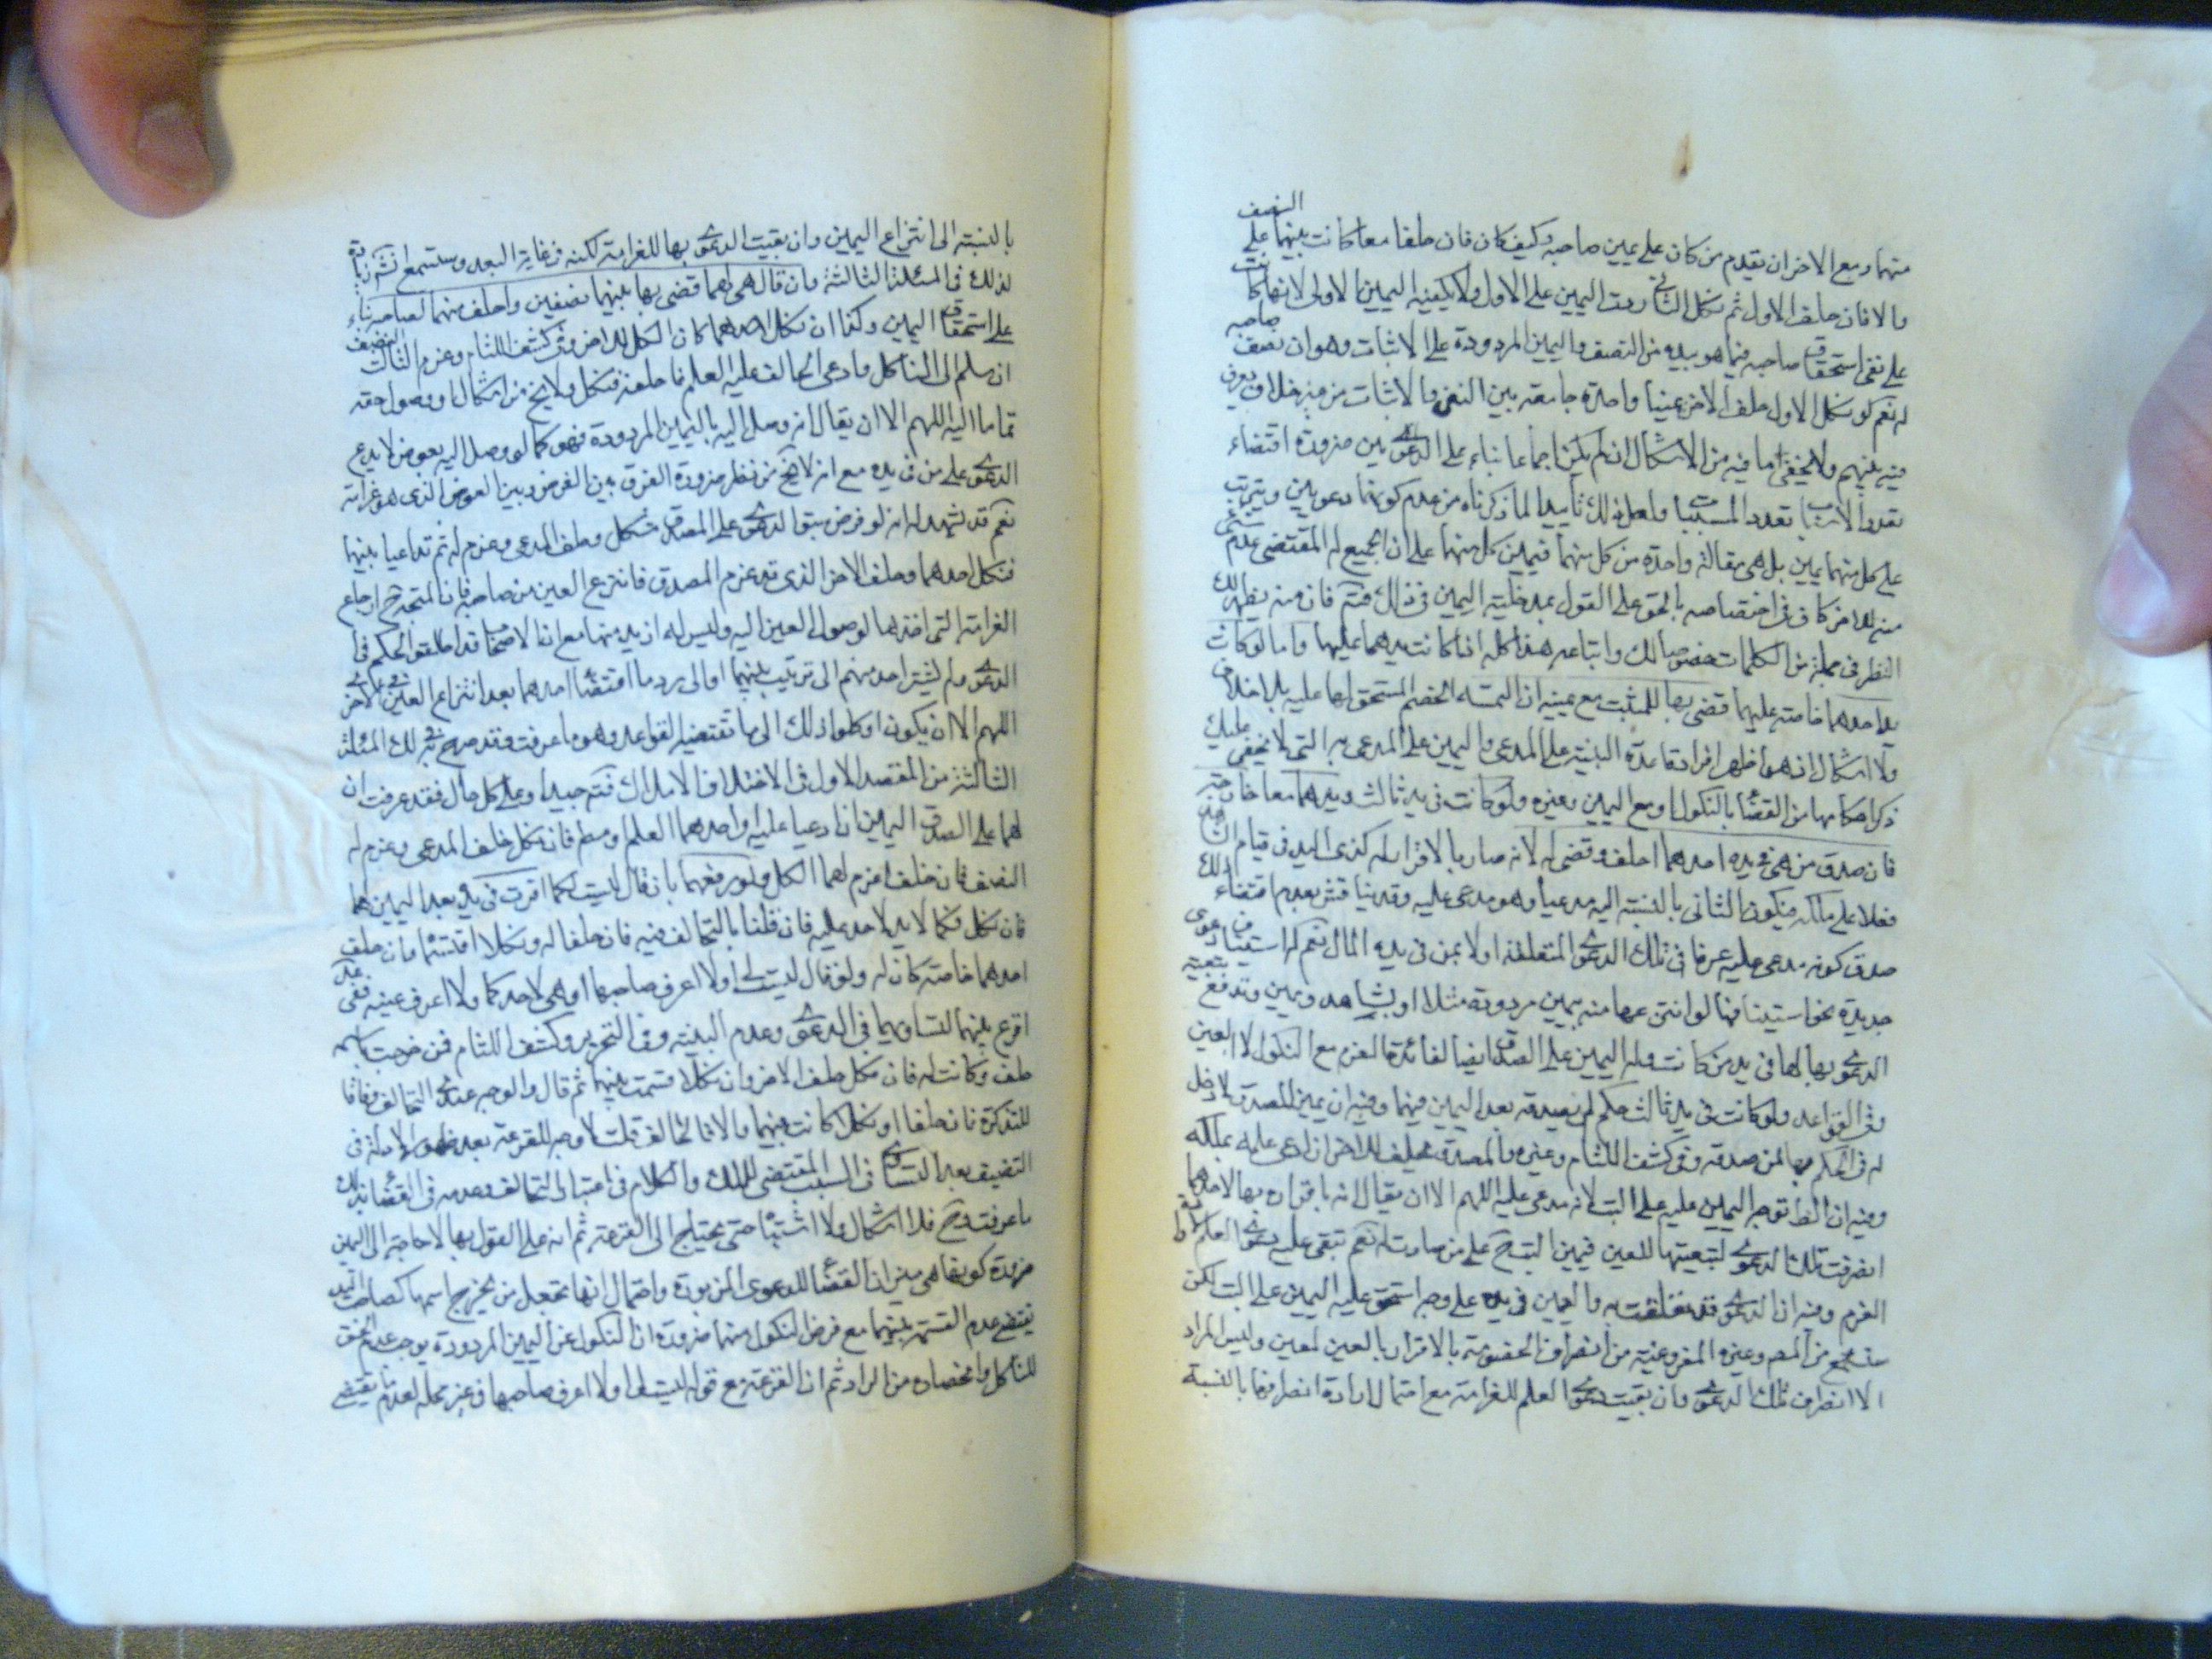 منهما ومع الاخران تقدم من كان على يمين صاحبه وكيف كان فان حلفا معا كانت بينهما على النصف
والا فان حلف الاول ثم نكل الثاني ردت اليمين على الاول ولا يكفيه اليمين الاولى لانها كانت
على نفى استحقاق صاحبه فيما هو بيده من النصف واليمين المردودة على الاثبات وهو ان نصف صاحبه
له نعم لو نكل الاول حلف الاخر يمينا واحدة جامعة بين النفى والاثبات من غير خلاف يعرف
فيه بينهم ولا يخفى ما فيه من الاشكال ان لم يكن اجماعا بناء على الدعويين ضرورة اقتضاء
تعدد الاسباب تعدد المسببات ولعل ذلك تأييدا لما ذكرناه من عدم كونهما دعويين ويترتب
على كل منهما يمين بل هى مقالة واحدة من كل منهما فيمين كل منهما على ان الجميع له المقتضى عدم شئ
منه للاخر كاف فى اختصاصه بالحق على القول بمدخلية اليمين فى ذلك فتم فان منه يظهر لك
النظر فى جملة من الكلمات خصوصا لك واتباعه هذا كله اذا كانت يدهما عليها واما لو كانت
يد احدهما خاصة عليها قضى بها للمثبت مع يمينه ان التمسه الخصم المستحق لها عليه بلا خلاف
ولا اشكال اذ هو اظهر افراد قاعدة البينة على المدعى واليمين على المدعى به التى لا يخفى عليك
ذكر احكامها من القضاء بالنكول او مع اليمين وغيره ولو كانت فى يد ثالث ويدهما معا خارجتين
فان صدق من هى فى يده احدهما احلف وقضى له لانه صار بالاقرار له كذى اليد فى قيام الشاهد
فعلا على ملكه فيكون الثانى بالنسبة اليه مدعيا وهو مدعى عليه وقد يناقش بعدم اقتضاء ذلك
صدق كونه مدعى عليه عرفا فى تلك الدعوى المتعلقة اولا بمن فى يده المال نعم له استيناف دعوى
جديدة نحو استينافها لو انتزعها منه بيمين مردودة مثلا او بشاهد ويمين وتدفع بتبعية
الدعوى بها لها فى يد من كانت وله اليمين على المصدق ايضا لفائدة الغرم مع النكول لا العين
وفى القواعد ولو كانت فى يد ثالث حكم لمن يصدقه بعد اليمين منهما وفيه ان يمين المصدق لا دخل
له فى الحكم بها لمن صدقه وفى كشف اللثام وغيره والمصدق يحلف للاخر ان ادعى علمه بملكه
وفيه ان الظ توجه اليمين عليه على البت لانه مدعى عليه اللهم الا ان يقال انه باقراره بها لاحدهما
انصرفت تلك الدعوى لتبعيتها للعين فيمين البت ح على من صارت له نعم تبقى عليه دعوى العلم لا فى
الغرم وفيه ان الدعوى قد تعلقت به والعين فى يده على وجه استحق عليه اليمين على البت لكن
ستسمع من المص وغيره المفروغية من انصراف الخصومة بالاقرار بالعين لمعين وليس المراد
الا انصراف تلك الدعوى وان بقيت دعوى العلم للغرامة مع احتمال ارادة انصرافها بالنسبة
بالنسبة الى انتزاع اليمين وان بقيت الدعوى بها للغرامة لكنه فى غاية البعد وستسمع انش زيادة
لذلك فى المسئلة الثالثة وان قال هى لهما قضى بها بينهما نصفين واحلف منهما لصاحبه بناء
على استحقاق اليمين وكذا ان نكل احدهما كان الكل للاخر وفى كشف اللثام وغرم الثالث النصف
ان سلم الى الناكل وادعى الحالف عليه العلم فاحلفه فنكل ولا يخ من اشكال او وصول حقه
تماما اليه اللهم الا ان يقال انه وصل اليه باليمين المردودة فهو كما لو وصل اليه بعوض لا يدع
الدعوى على من فى يده مع انه لا يخ من نظر ضرورة الفرق بين الفرض وبين العوض الذى هو غرامة
نعم قد يشهد له انه لو فرض سبق الدعوى على المصدق فنكل وحلف المدعى وغرم له ثم تداعيا بينهما
فنكل احدهما وحلف الاخر الذى قد غرم المصدق فانتزع العين من صاحبه فان المتجه ح ارجاع
الغرامة التى اخذها لوصول العين اليه وليس له ازيد منها مع ان الاصحاب قد اطلقوا الحكم فى
الدعوى ولم يشر احد منهم الى ترتيب بينهما او الى رد ما اقتضاه احدهما بعد انتزاع العين من الاخر
اللهم الا ان يكون اوكلوا ذلك الى ما تقتضيه القواعد وهو ما عرفت وقد صرح فى ك بذلك المسئلة
الثالثة من المقصد الاول فى الاختلاف الاملاك فتم جيدا وعلى كل حال فقد عرفت ان
لهما على المصدق اليمين ان ادعيا عليه او احدهما العلم او مط فان نكل حلف المدعى وغرم له
النصف فان حلفا غرم لهما الكل ولو رفعهما بان قال ليست لكما اقرت فى يده بعد اليمين لهما
فان نكل فكما لا يد لاحد عليه فان قلنا بالتحالف فيه فان حلفا له ونكلا اقتسما وان حلف
احدهما خاصة كان له ولو قال ليست لى او لا اعرف صاحبها او هى لاحدكما ولا اعرف عينه ففى عد
اقرع بينهما لتساويهما فى الدعوى وعدم البينة وفى التحرير وكشف اللثام فمن خرجت باسمه
حلف وكانت له فان نكل حلف الاخر وان نكلا قسمت بينهما ثم قال والوجه عندى التحالف وفاقا
للتذكرة فان حلفا او نكلا كانت بينهما والا فللحالف قلت لا وجه للقرعة بعد ظهور الادلة فى
التنصيف بعد التساوى فى السبب المقتضى للملك والكلام فى اعتبار التحالف وعدمه فى القضاء بذلك
ما عرفت وح فلا اشكال ولا اشتباه حتى يحتاج الى القرعة ثم انه على القول بها لا حاجة الى اليمين
ضرورة كونها هى ميزان القضاء للدعوى المزبورة واحتمال انها تجعل من يخرج اسمها كصاحب اليد
يقتضى عدم القسمة بينهما مع فرض النكول منهما ضرورة ان النكول عن اليمين المردودة يوجب عدم الحق
للناكل وانحصاره من الراد ثم ان القرعة مع قوله ليست لى او لا اعرف صاحبها فى غير محله لعدم ما يقتضى